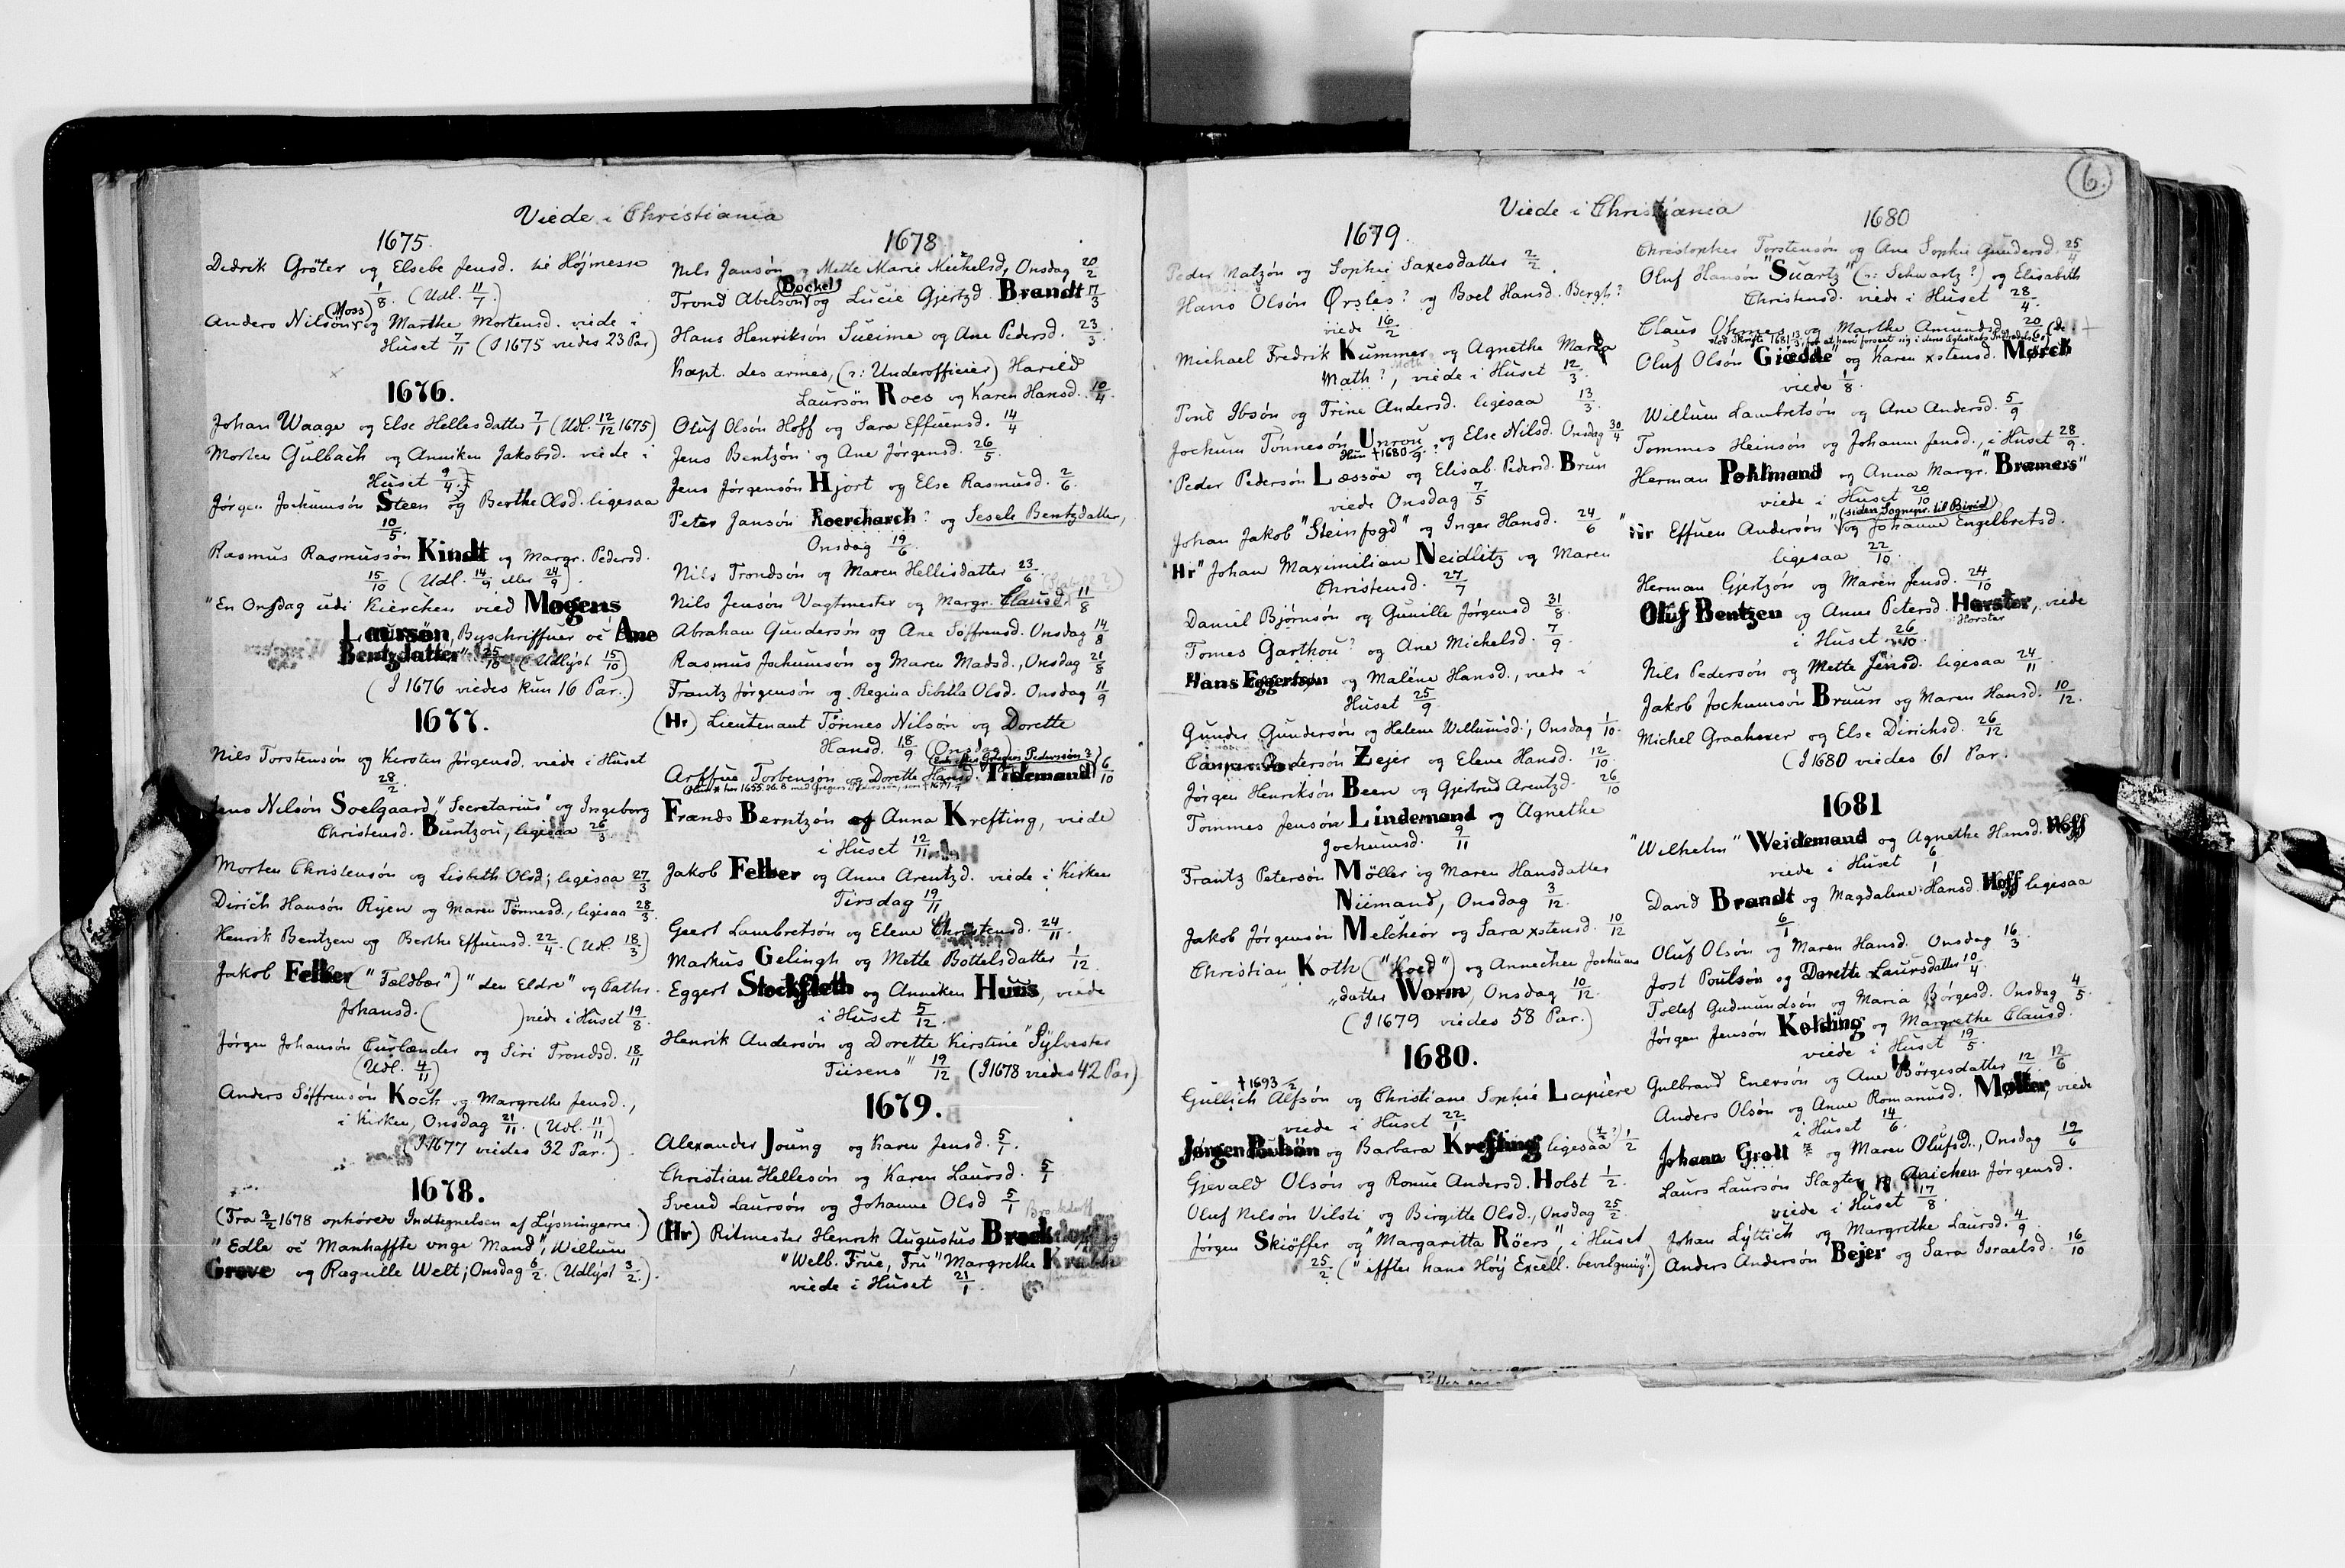 Viede i Christiania
1675.
Didrik Gröter og Elsebe Jensd. til Højmesse
1/8. (Udl. 11/7.)
(Moss)
Anders Nilsön og Marthe Mortensd. viede i
Huset 7/11 (I 1675 viedes 23 Par)
1676.
Johan Waage og Else Hellesdatter 7/1 (Udl. 12/12 1675)
Morten Gulbach og Anniken Jakobsd. viede i
Huset 9/4.
Jørgen Jochumsön Steen og Berthe Olsd. ligesaa
10/5.
Rasmus Rasmussön Kindt og Margr. Pedersd.
15/10 (Udl. 14/9 eller 24/9).
"En Onsdag udi Kierchen vied Mogens
Laursøn, Byschriffuer oc Ane
Bentzdatter" 25/10 (Udlyst 15/10)
(I 1676 viedes kun 16 Par.)
1677.
Nils Torstensön og Kirsten Jørgensd. viede i Huset
28/2.
Jens Nilsön Soelgaard, "Secretarius" og Ingeborg
Christensd. Buntzou, ligesaa 26/3.
Morten Christensön og Lisbeth Olsd; ligesaa 27/3
Dirich Hansön Rijen og Maren Tönnesd., ligesaa 28/3.
Henrik Bentzen og Berthe Effuensd. 22/4. (Udl. 18/3)
Jakob Felber ("Fældbær") "den Eldre" og Cathr.
Johansd. ( ) viede i Huset 19/8.
Jørgen Johansön Curlænder og Siri Trondsd. 18/11
(Udl. 4/11)
Anders Söffrensön Koch og Margrethe Jensd.,
i Kirken, Onsdag 21/11. (Udl. 11/11)
(I 1677 viedes 32 Par.)
1678.
(Fra 3/2 1678 ophører Indtegnelsen af Lysningerne.)
"Edle oc Manhaffte unge Mand", Willum
Grove og Ragnille Welt; Onsdag 6/2. (Udlyst 3/2.)
1678
Nils Jansön og Mette Marie Meichelsd, Onsdag 20/2
(Bockel)
Trond Abelsön og Lucie Gjertzd. Brandt 17/3
Hans Henriksön Sueime og Ane Pedersd. 23/3.
Kapt. des armes, (ɔ: Underofficier) Harild
Laursön Roes og Karen Hansd. 10/4.
Oluf Olsön Hoff og Sara Effuensd. 14/4
Jens Bentzön og Ane Jörgensd. 26/5.
Jens Jørgensön Hjort og Else Rasmusd. 2/6.
Peter Jansön Roercharch? og Sesele Bentzdatter,
Onsdag 19/6.
Nils Trondsön og Maren Hellisdatter 23/6
Nils Jensön Vagtmester og Margr. Clausd. 11/8
Abraham Gundersön og Ane Söffrensd. Onsdag 14/8
Rasmus Jochumsön og Maren Madsd., Onsdag 21/8
Frantz Jørgensön og Regina Sibilla Olsd. Onsdag 11/9
(Hr) Lieutenant Tönnes Nilsön og Dorette
Hansd. 18/9 (Onsdag)
Arffue Torbensön og Dorette Hansd. Tidemand 6/10
Frands Berntzön og Anna Krefting, viede
i Huset 12/11
Jakob Felber og Anne Arentzd. viede i Kirken
Tirsdag 19/11
Geert Lambretsön og Elene Christensd. 24/11.
Markus Gelingh og Mette Bottelsdatter 1/12.
Eggert Stockfleth og Anniken Huus, viede
i Huset 5/12.
Henrik Andersön og Dorette Kirstine "Sylvester
Tiisens" 19/12 (I 1678 viedes 42 Par)
1679.
Alexander Joung og Karen Jensd. 5/1.
Christian Hellesön og Karen Laursd. 5/1
Svend Laursön og Johanne Olsd 5/1
(Hr) Ritmester Henrich Augustus Brockdorff og
"Welb. Frue, Fru" Margrethe Krabbe
viede i Huset 21/1.
6.
Viede i Christiania
1679.
Peder Matzön og Sophie Saxesdatter 2/2.
Hans Olsön Ørsles? og Boel Hansd. Bergh?
viede 16/2
Michael Fredrik Kummer og Agnethe Maria
Math?, viede i Huset 12/3.
Poul Ibsön og Trine Andersd. ligesaa 13/3.
Jochum Tönnesön Unrou og Else Nilsd. Onsdag 30/4
Peder Pedersön Læssöe og Elisab. Pedersd. Brun
viede Onsdag 7/5
Johan Jakob "Steinfogd" og Inger Hansd. 24/6
"Hr" Johan Maximilian Neidlitz og Maren
Christensd. 27/7
Daniel Bjørnsön og Gunille Jørgensd 31/8.
Tomes Garthou? og Ane Mickelsd. 7/9.
Hans Eggertsøn og Maléne Hansd., viede i
Huset 25/9
Gunder Gundersön og Helene Wellumsd.; Onsdag 1/10.
Casper Andersön Zejer og Elene Hansd. 12/10.
Jörgen Henriksön Been og Gjertrud Arentzd. 26/10
Tommes Jensön Lindemand og Agnethe
Jochumsd. 9/11
Frantz Petersön Möller og Maren Hansdatter
Niimand, Onsdag 3/12.
Jakob Jörgensön Melchior og Sara xstensd. 10/12
Christian Koth ("Koed") og Annechen Jochums
datter Worm, Onsdag 10/12.
(I 1679 viedes 58 Par.)
1680.
† 1693
Gullich Alfsön og Christiane Sophie Lapiere
viede i Huset 22/1
Jørgen Poulsön og Barbara Krefting ligesaa 1/2
Gjevald Olsön og Ronue Andersd. Holst 1/2.
Oluf Nilsön Vilsti og Birgitte Olsd., Onsdag 25/2
Jörgen Skiöffer og "Margaritta Röers", i Huset
25/2. ("effter hans Höij Excell. bevilgning".)
1680
Christopher Torstensön og Ane Sophie Gundersd. 25/4
Oluf Hansön "Suartz" (ɔ: Schwartz?) og Elisabeth
Christensd. viede i Huset 28/4.
Claus Ohmes og Marthe Amundsd. 20/6 (de
Oluf Olsön Giedde og Karen xstensd. Mørch
viede 1/8.
Willum Lambretsön og Ane Andersd. 5/9
Tommes Heinsön og Johanne Jensd., i Huset 28/9.
Herman Pohlmand og Anna Margr. "Bræmers"
viede i Huset 20/10
(siden Sognepr. til Birid)
"Hr Effuen Andersön" og Johanne Engelbretsd.
ligesaa 22/10.
Herman Gjertzön og Maren Jensd. 24/10
Oluf Bentzen og Anne Petersd. Horster, viede
Horster
i Huset 26/10
Nils Pedersön og Mette Jensd. ligesaa 24/11.
Jakob Jochumsön Bruun og Maren Hansd. 10/12.
Michel Graahuer og Else Dirichsd. 26/12
(I 1680 viedes 61 Par.
1681
"Wilhelm" Weidemand og Agnethe Hansd. Hoff
viede i Huset 6/1
David Brandt og Magdalene Hansd. Hoff ligesaa
6/1
Oluf Olsön og Maren Hansd. Onsdag 16/3.
Jost Poulsön og Dorette Laursdatter 10/4.
Tollef Gudmundsön og Maria Börgesd. Onsdag 4/5.
Jørgen Jensön Kolding og Margrethe Clausd.
viede i Huset 19/5.
Gulbrand Enersön og Ane Börgesdatter 12/6
Anders Olsön og Anne Romanusd. Møller, viede
i Huset 14/6.
Johann Grott og Maren Olufsd., Onsdag 19/6
Laurs Laursön Slagter og Anichen Jörgensd.
viede i Huset 17/8.
Johan Lyttich og Margrethe Laursd. 4/9.
Anders Andersön Bejer og Sara Israelsd. 16/10